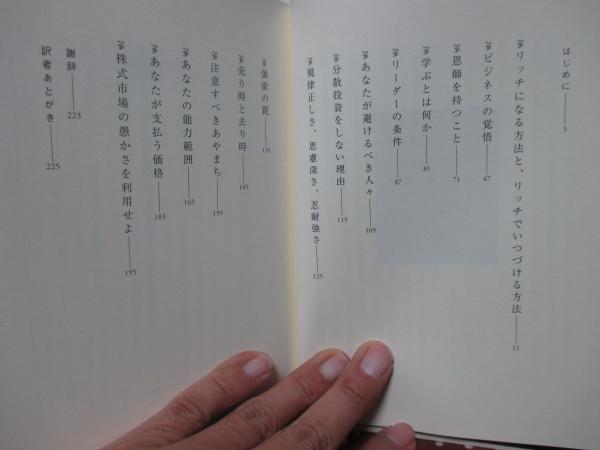 はじめに——3
リッチになる方法と、リッチでいつづける方法——11
ビジネスの覚悟——47
恩師を持つこと——71
学ぶとは何か——81
リーダーの条件——87
あなたが避けるべき人々——105
分散投資をしない理由——115
規律正しさ、思慮深さ、忍耐強さ——125
強欲の罠——135
売り時と去り時——145
注意すべきあやまち——159
あなたの能力範囲——165
あなたが支払う価格——183
株式市場の愚かさを利用せよ——195
謝辞——223
訳者あとがき——225